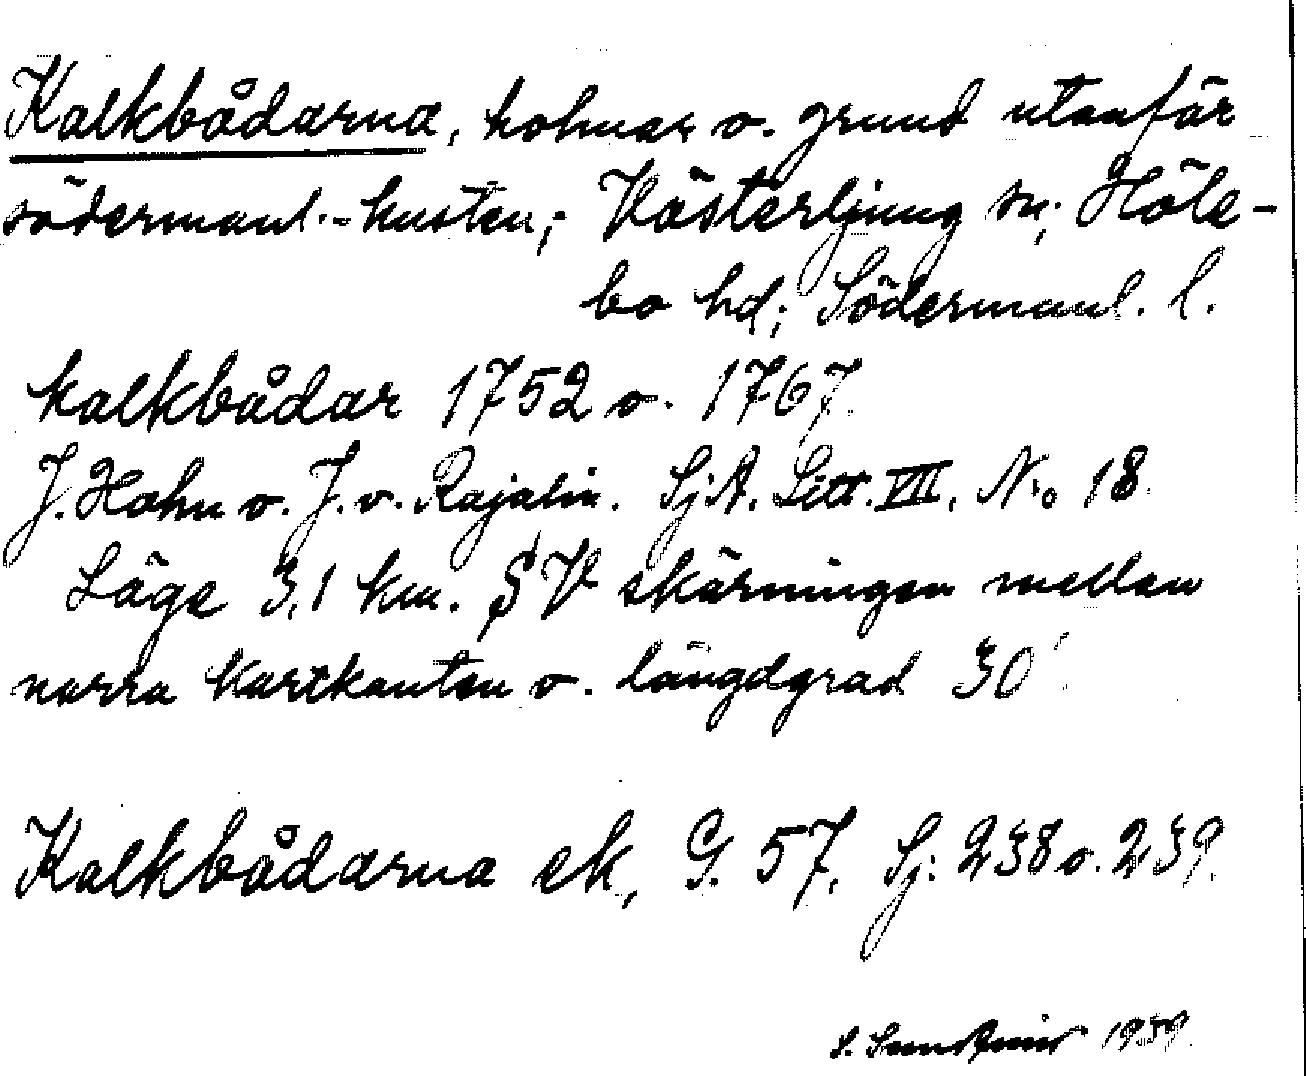 Kalkbådarna, holmar o. grund utanför
södermanl.-kusten; Västerljung sn; Höle-
bo hd; Södermanl. l.
kalkbådar 1752 o. 1767.
J. Hahn o. J. v. Rajalin. SjA. Litt. VII. No 18.
Läge 3,1 km. SV skärningen mellan
norra kartkanten o. längdgrad 30'
Kalkbådarna ek, G. 57. Sj: 238 o. 239.
S. 1939.